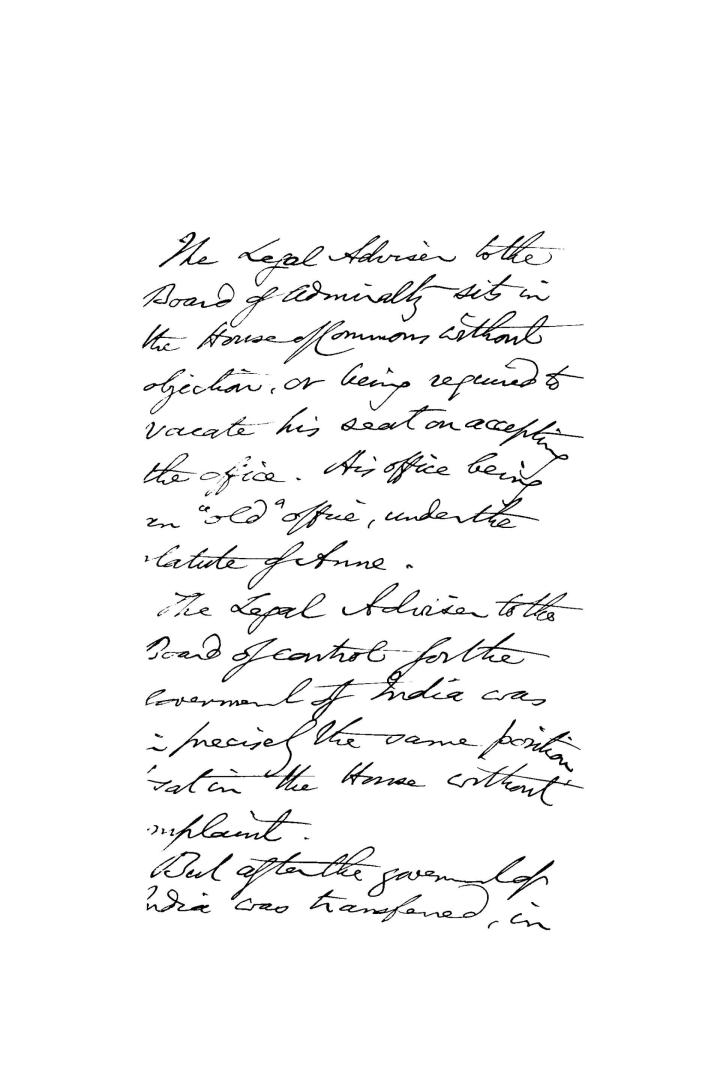 The Legal Adviser to the
Board of Admiralty sits in
the House of Commons without
objection, or being required to
vacate his seat on accepting
the office. His office being
an "old" office, under the
statute of Anne.
The Legal Adviser to the
Board of control for the
Government of India was
in precisely the same position
sat in the House without
complaint.
But after the government of
India was transferred, in